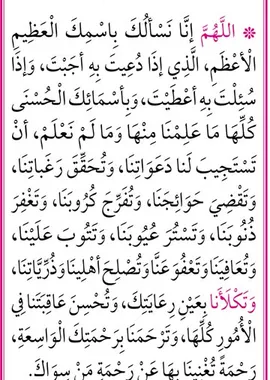 * اللَّهُمَّ إِنَّا نَسْأَلُكَ بِاسْمِكَ الْعَظِيمِ
الْأَعْظَمِ، الَّذِي إِذَا دُعِيتَ بِهِ أَجَبْتَ، وَإِذَا
سُئِلْتَ بِهِ أَعْطَيْتَ، وَبِأَسْمَائِكَ الْحُسْنَى
كُلِّهَا مَا عَلِمْنَا مِنْهَا وَمَا لَمْ نَعْلَمْ، أَنْ
تَسْتَجِيبَ لَنَا دَعَوَاتِنَا، وَتُحَقِّقَ رَغَبَاتِنَا،
وَتَقْضِيَ حَوَائِجَنَا، وَتُفَرِّجَ كُرُوبَنَا، وَتَغْفِرَ
ذُنُوبَنَا، وَتَسْتُرَ عُيُوبَنَا، وَتَتُوبَ عَلَيْنَا،
وَتُعَافِيَنَا وَتَعْفُوَ عَنَّا وَتُصْلِحَ أَهْلِينَا وَذُرِّيَّاتِنَا،
وَتَكْلَأَنَا بِعَيْنِ رِعَايَتِكَ، وَتُحْسِنَ عَاقِبَتَنَا فِي
الْأُمُورِ كُلِّهَا، وَتَرْحَمَنَا بِرَحْمَتِكَ الْوَاسِعَةِ،
رَحْمَةً تُغْنِينَا بِهَا عَنْ رَحْمَةِ مَنْ سِوَاكَ.